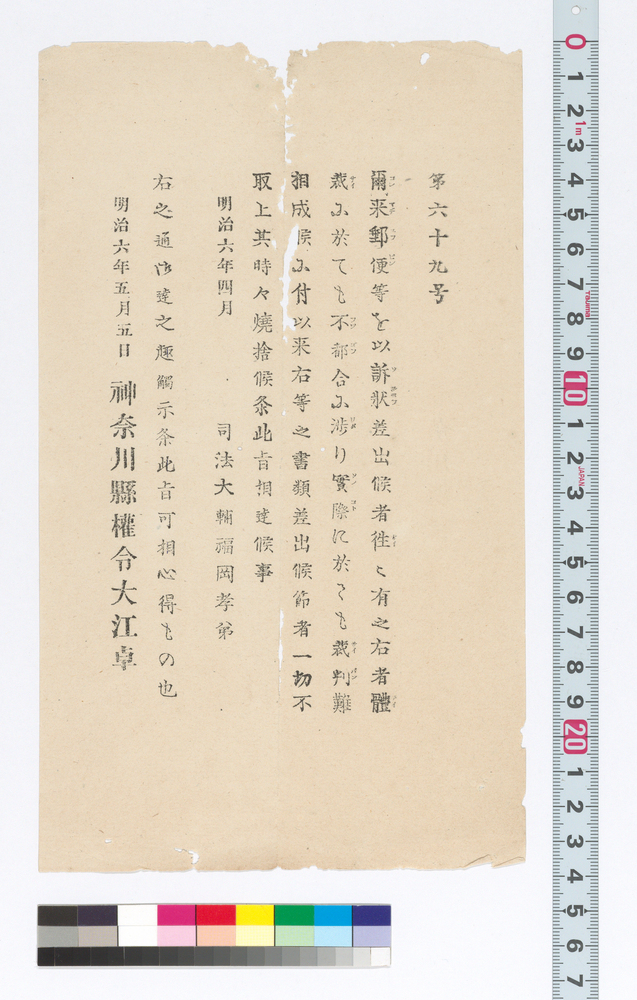 第六十九号
爾来郵便等を以訴状差出候者徃〻有之右者體
裁ニ於ても不都合ニ渉り實際に於ても裁判難
相成候ニ付以来右等之書類差出候節者一切不
取上其時々燒捨候条此旨相達候事
明治六年四月
司法大輔福岡孝弟
右之通御達之趣觸示条此旨可相心得もの也
明治六年五月五日
神奈川縣權令大江卓
0 1 2 1m 3 4 5 6 7 8 9 10 1 2 3 4 5 6 7 8 9 20 1 2 3 4 5 6 7
JAPAN